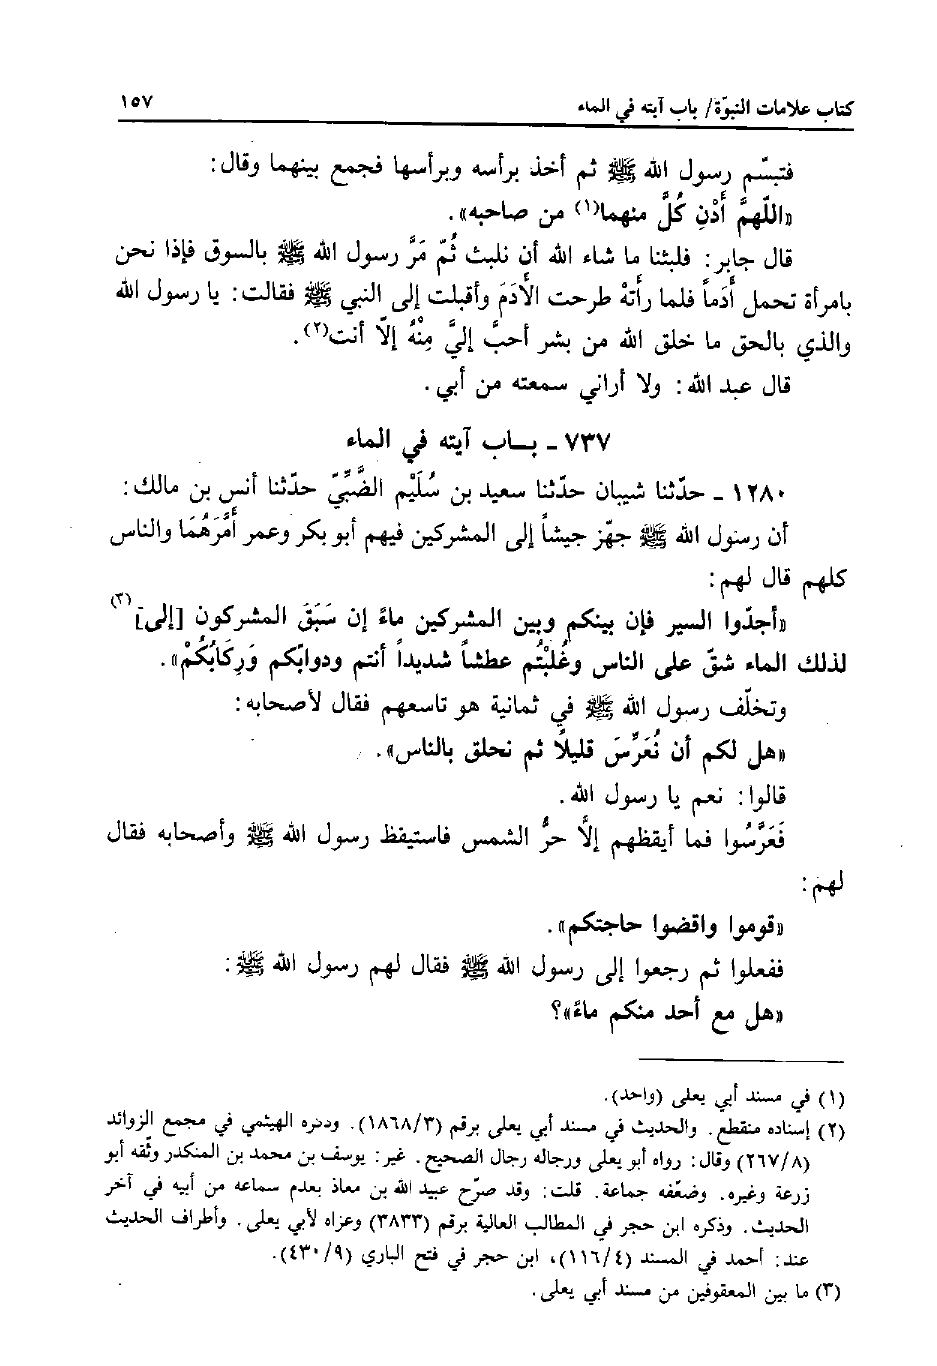 كتاب علامات النبوّة/ باب آيته في الماء ١٥٧
فتبسّم رسول الله ﷺ ثم أخذ برأسه وبرأسها فجمع بينهما وقال:
«اللّهمَّ أَدْنِ كُلَّ منهما(١) من صاحبه».
قال جابر: فلبثنا ما شاء الله أن نلبث ثُمّ مَرَّ رسول الله ﷺ بالسوق فإذا نحن
بامرأة تحمل أَدَماً فلما رأَتهْ طرحت الأَدَمَ وأقبلت إلى النبي ﷺ فقالت: يا رسول الله
والذي بالحق ما خلق الله من بشر أحبَّ إليَّ مِنْهُ إلّا أنت(٢).
قال عبد الله: ولا أراني سمعته من أبي.
٧٣٧ - بـاب آيته في الماء
١٢٨٠ - حدّثنا شيبان حدّثنا سعيد بن سُلَيْم الضَّبِّيّ حدّثنا أنس بن مالك:
أن رسول الله ﷺ جهّز جيشاً إلى المشركين فيهم أبو بكر وعمر أَمَّرَهُمَا والناس
كلهم قال لهم:
«أجدّوا السير فإن بينكم وبين المشركين ماءً إن سَبَقَ المشركون [إلى](٣)
لذلك الماء شقّ على الناس وغُلِبْتُم عطشاً شديداً أنتم ودوابّكم وَرِكَابُكُمْ».
وتخلّف رسول الله ﷺ في ثمانية هو تاسعهم فقال لأصحابه:
«هل لكم أن نُعَرِّسَ قليلًا ثم نحلق بالناس».
قالوا: نعم يا رسول الله.
فَعَرَّسُوا فما أيقظهم إلَّا حرُّ الشمس فاستيفظ رسول الله ﷺ وأصحابه فقال
لهم:
«قوموا واقضوا حاجتكم».
ففعلوا ثم رجعوا إلى رسول الله ﷺ فقال لهم رسول الله ﷺ:
«هل مع أحد منكم ماءً»؟
(١) في مسند أبي يعلى (واحد).
(٢) إسناده منقطع. والحديث في مسند أبي يعلى برقم (١٨٦٨/٣). وذكره الهيثمي في مجمع الزوائد
(٢٦٧/٨) وقال: رواه أبو يعلى ورجاله رجال الصحيح. غير: يوسف بن محمد بن المنكدر وثّقه أبو
زرعة وغيره. وضعّفه جماعة. قلت: وقد صرّح عبيد الله بن معاذ بعدم سماعه من أبيه في آخر
الحديث. وذكره ابن حجر في المطالب العالية برقم (٣٨٣٣) وعزاه لأبي يعلى. وأطراف الحديث
عند: أحمد في المسند (١١٦/٤)، ابن حجر في فتح الباري (٤٣٠/٩).
(٣) ما بين المعقوفين من مسند أبي يعلى.